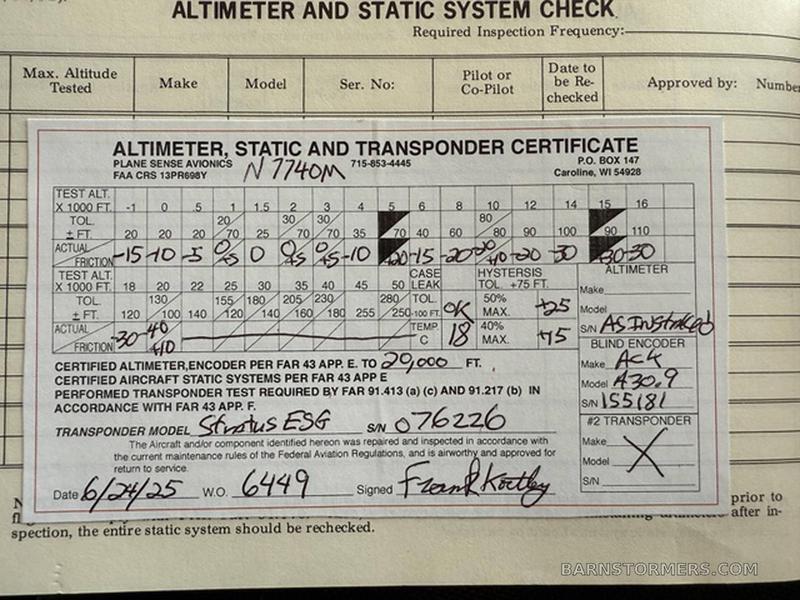 ALTIMETER AND STATIC SYSTEM CHECK.
Required Inspection Frequency:
Max. Altitude Tested Make Model Ser. No: Pilot or Co-Pilot Date to be Re-checked Approved by: Number
ALTIMETER, STATIC AND TRANSPONDER CERTIFICATE
PLANE SENSE AVIONICS N7740M 715-853-4445 P.O. BOX 147
FAA CRS 13PR698Y Caroline, WI 54928
TEST ALT.
X 1000 FT. -1 0 .5 1 1.5 2 3 4 5 6 8 10 12 14 15 16
TOL. 20 30 30 80
± FT. 20 20 20 70 25 70 70 35 70 40 60 80 90 100 90 110
ACTUAL -15 -10 -5 0 0 0 0 -10 -15 -20 -20 -20 -30 -30
FRICTION +5 +5 +5 -20 +10 -30
TEST ALT.
X 1000 FT. 18 20 22 25 30 35 40 45 50 CASE LEAK HYSTERSIS TOL. +75 FT. ALTIMETER
TOL. 130 155 180 205 230 280 TOL. OK 50% +25 Make
± FT. 120 100 140 120 140 160 180 255 250 -100 FT. MAX. Model
ACTUAL -30 -40 TEMP. 18 40% +75 S/N AS Installed
FRICTION +10 C MAX. BLIND ENCODER
CERTIFIED ALTIMETER,ENCODER PER FAR 43 APP. E. TO 20,000 FT. Make Ack
CERTIFIED AIRCRAFT STATIC SYSTEMS PER FAR 43 APP E Model A30.9
PERFORMED TRANSPONDER TEST REQUIRED BY FAR 91.413 (a) (c) AND 91.217 (b) IN S/N 155181
ACCORDANCE WITH FAR 43 APP. F. #2 TRANSPONDER
TRANSPONDER MODEL Stratus ESG S/N 076226 Make X
The Aircraft and/or component identified hereon was repaired and inspected in accordance with
the current maintenance rules of the Federal Aviation Regulations, and is airworthy and approved for Model
return to service. S/N
Date 6/24/25 W.O. 6449 Signed
prior to
after in-
spection, the entire static system should be rechecked.
BARNSTORMERS.COM